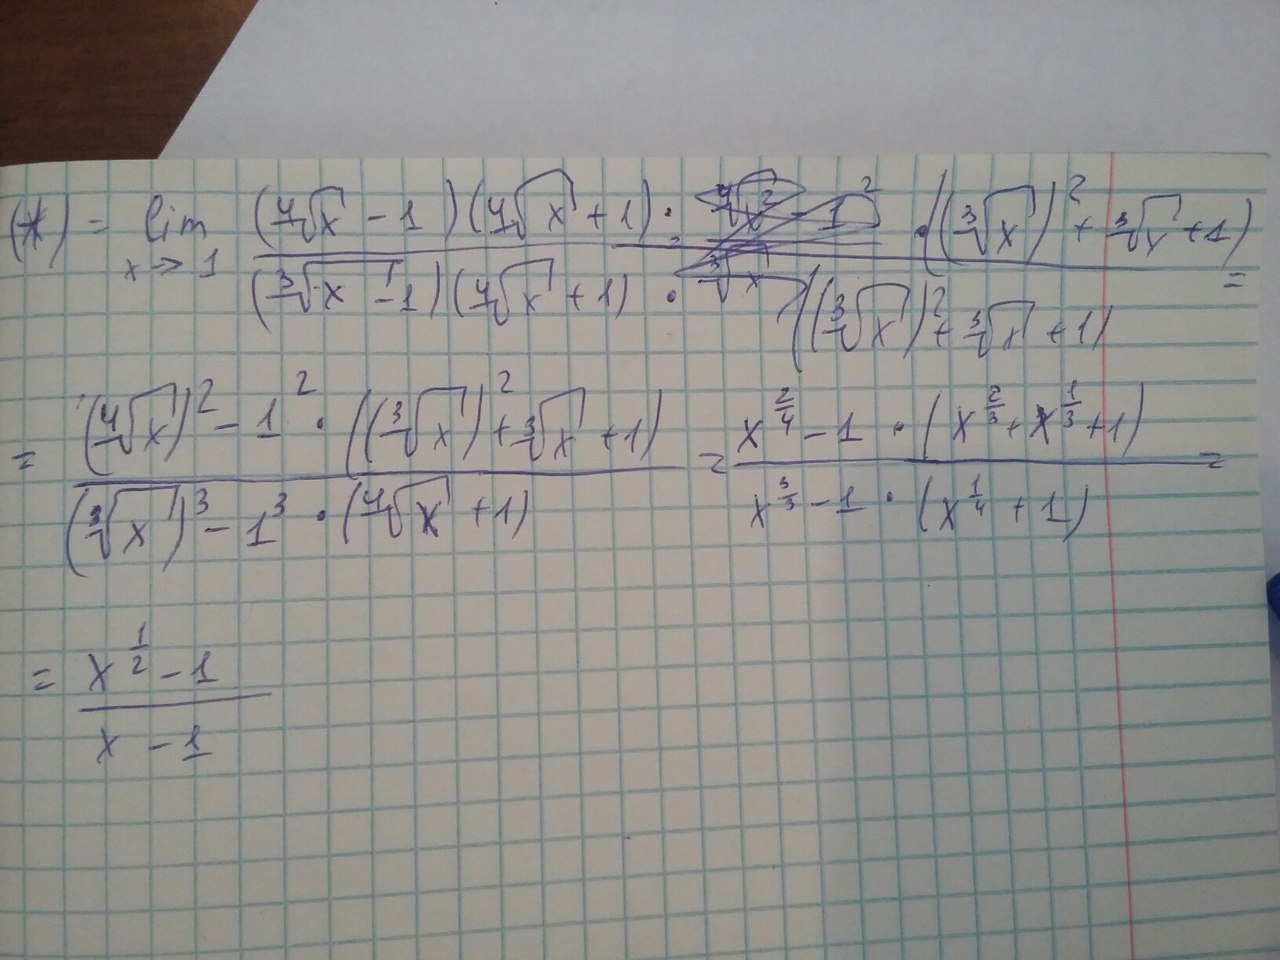 (*) = lim x→1 (∜x - 1)(∜x + 1) · ((∛x)² + ∛x + 1) / (∛x - 1)(∜x + 1) · ((∛x)² + ∛x + 1) =
= (∜x)² - 1² · ((∛x)² + ∛x + 1) / (∛x)³ - 1³ · (∜x + 1) = x^(2/4) - 1 · (x^(2/3) + x^(1/3) + 1) / x^(3/3) - 1 · (x^(1/4) + 1) =
= x^(1/2) - 1 / x - 1